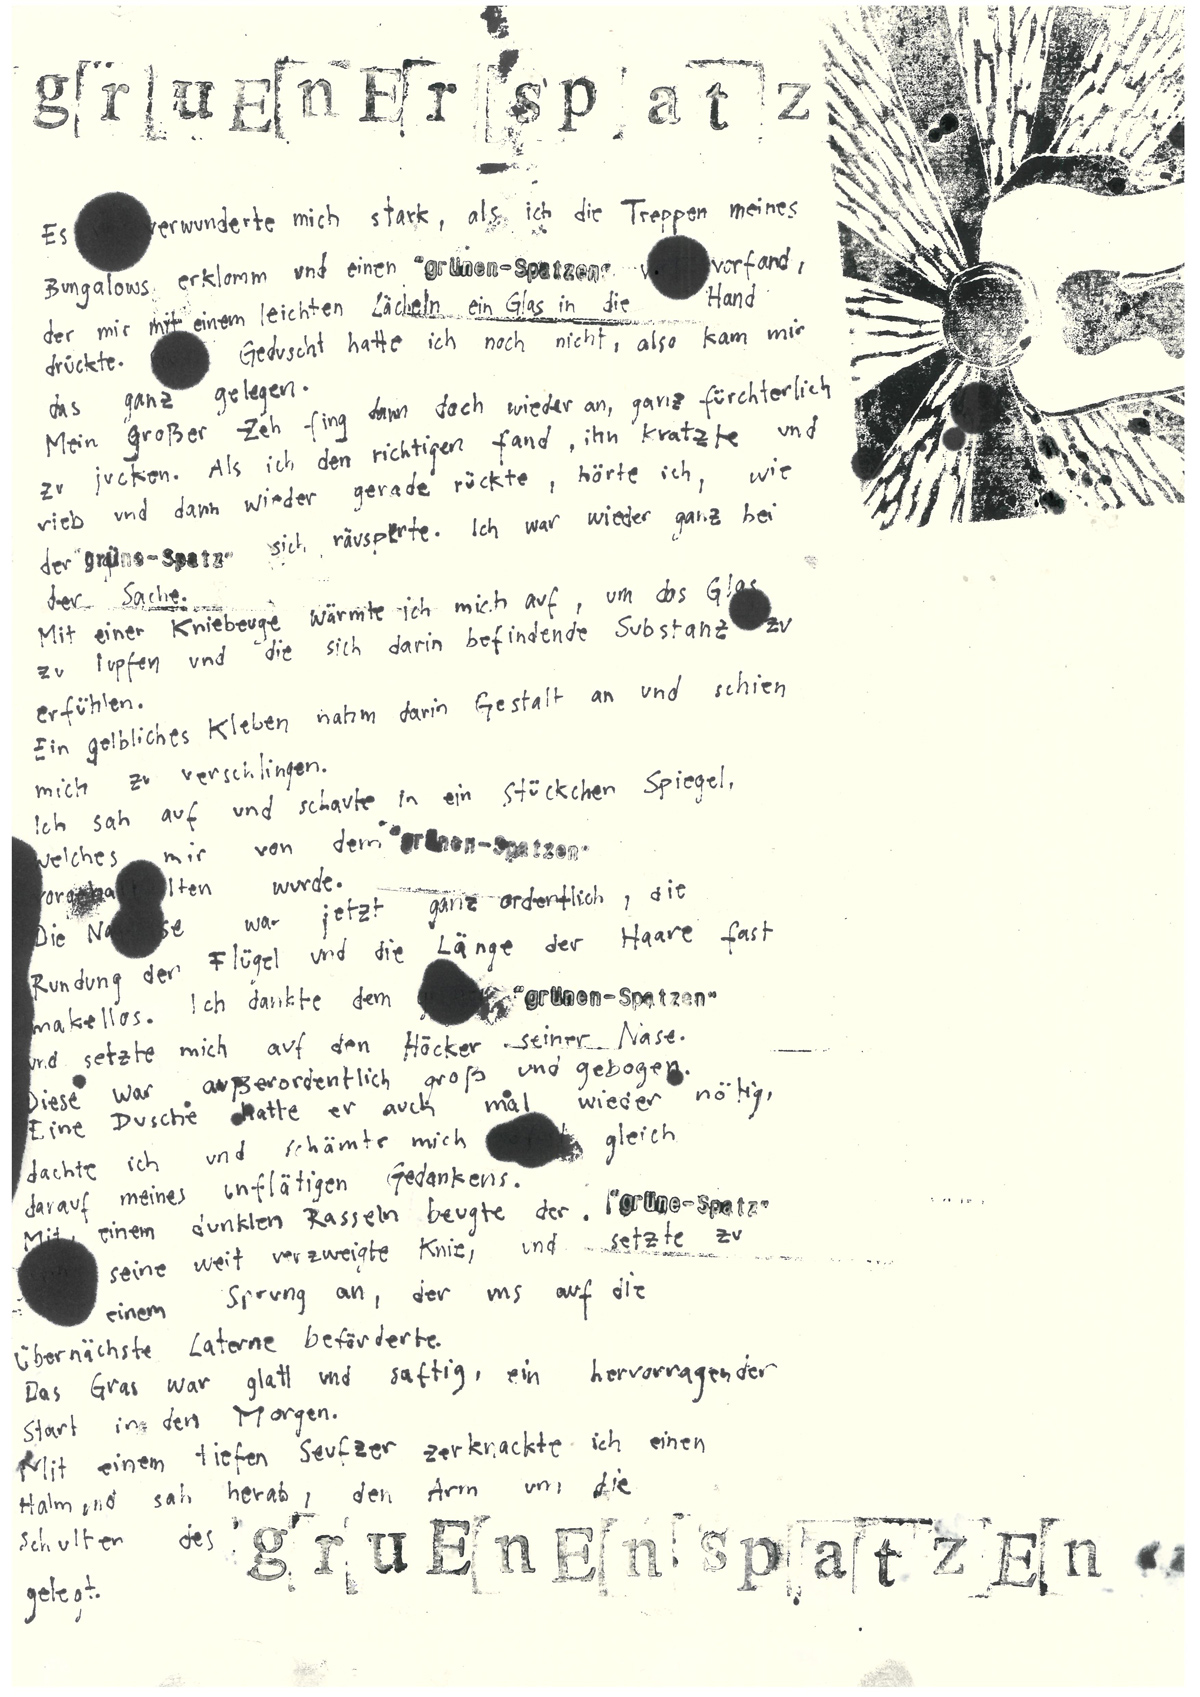 gruEnEr spatz
Es verwunderte mich stark, als ich die Treppen meines
Bungalows erklomm und einen "grünen-Spatzen" vorfand,
der mir mit einem leichten Lächeln ein Glas in die Hand
drückte. Geduscht hatte ich noch nicht, also kam mir
das ganz gelegen.
Mein großer Zeh fing dann doch wieder an, ganz fürchterlich
zu jucken. Als ich den richtigen fand, ihn kratzte und
rieb und dann wieder gerade rückte, hörte ich, wie
der "grüne-Spatz" sich räusperte. Ich war wieder ganz bei
der Sache.
Mit einer Kniebeuge wärmte ich mich auf, um das Glas
zu lupfen und die sich darin befindende Substanz zu
erfühlen.
Ein gelbliches Kleben nahm darin Gestalt an und schien
mich zu verschlingen.
Ich sah auf und schaute in ein Stückchen Spiegel,
welches mir von dem "grünen-Spatzen"
lten wurde.
Die war jetzt ganz ordentlich, die
Rundung der Flügel und die Länge der Haare fast
makellos. Ich dankte dem "grünen-Spatzen"
und setzte mich auf den Höcker seiner Nase.
Diese war außerordentlich groß und gebogen.
Eine Dusche hatte er auch mal wieder nötig,
dachte ich und schämte mich gleich
darauf meines unflätigen Gedankens.
Mit einem dunklen Rasseln beugte der "grüne-Spatz"
seine weit verzweigte Knie, und setzte zu
einem Sprung an, der uns auf die
übernächste Laterne beförderte.
Das Gras war glatt und saftig, ein hervorragender
Start in den Morgen.
Mit einem tiefen Seufzer zerknackte ich einen
Halm und sah herab, den Arm um die
Schulten des gruEnEn spatzEn
gelegt.